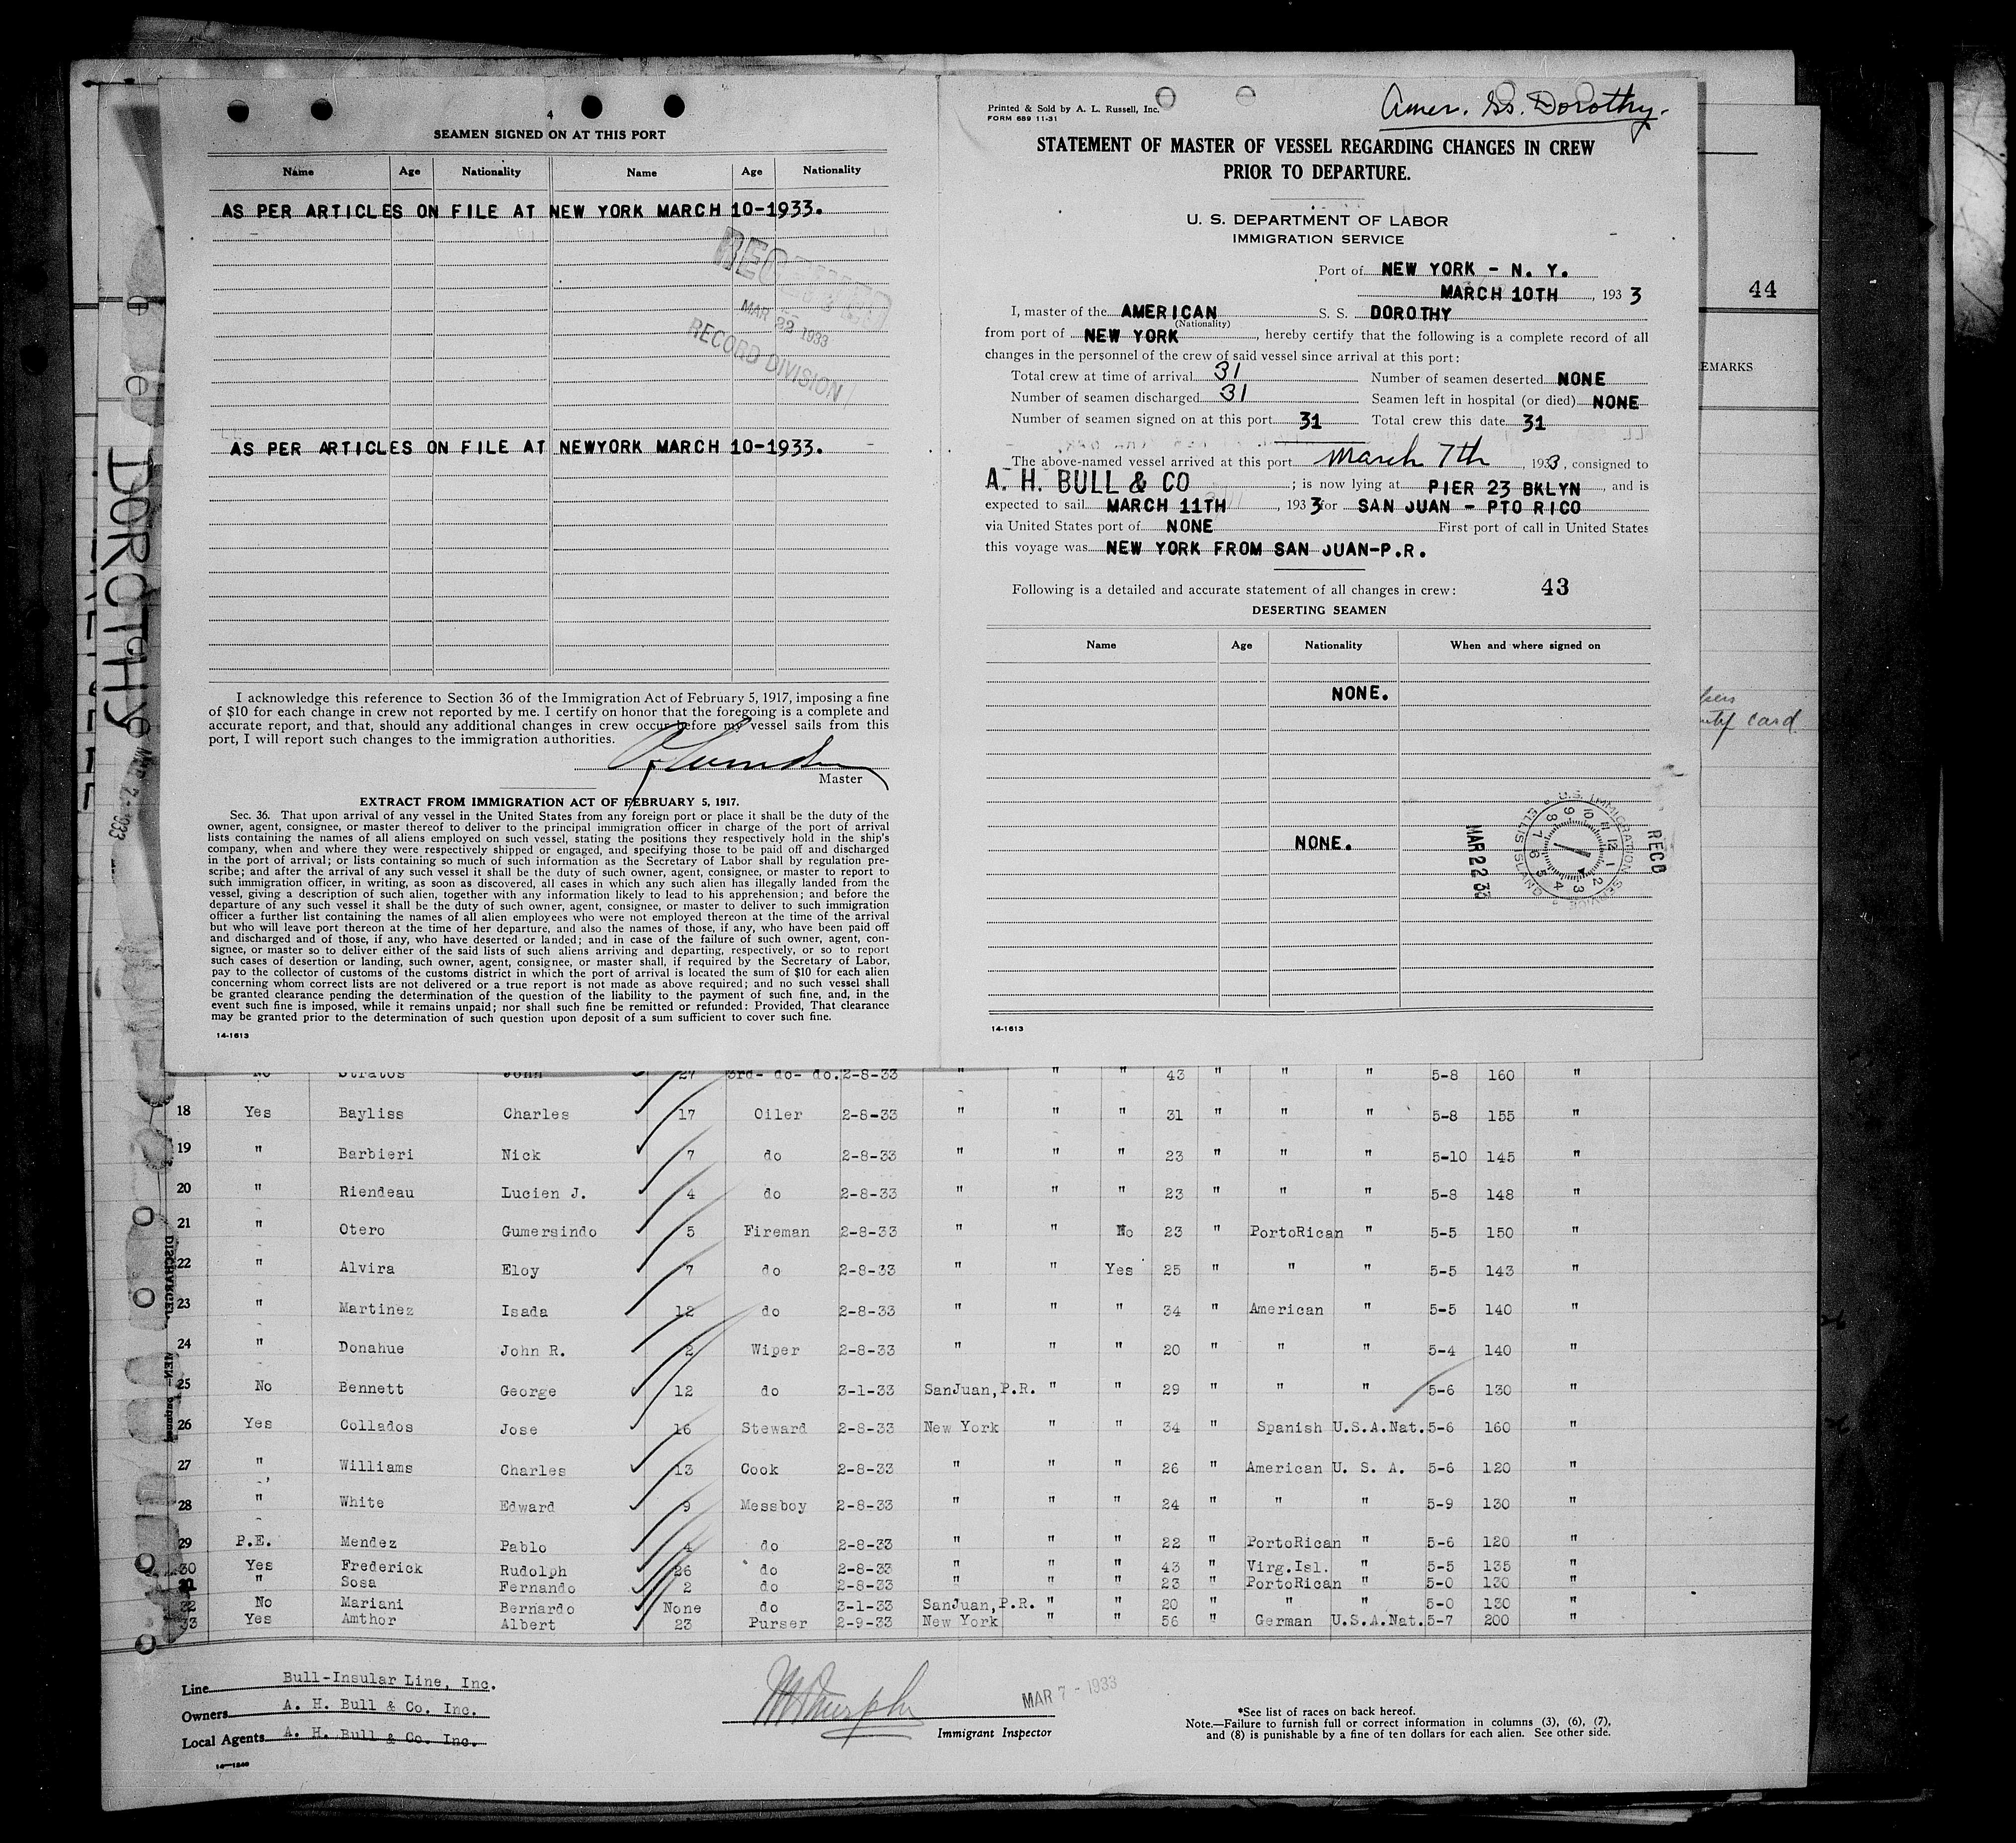 4
SEAMEN SIGNED ON AT THIS PORT
Name Age Nationality Name Age Nationality
AS PER ARTICLES ON FILE AT NEW YORK MARCH 10-1933.
MAR 22 1933
RECORD DIVISION
AS PER ARTICLES ON FILE AT NEWYORK MARCH 10-1933.
I acknowledge this reference to Section 36 of the Immigration Act of February 5, 1917, imposing a fine
of $10 for each change in crew not reported by me. I certify on honor that the foregoing is a complete and
accurate report, and that, should any additional changes in crew occur before my vessel sails from this
port, I will report such changes to the immigration authorities.
Master
EXTRACT FROM IMMIGRATION ACT OF FEBRUARY 5, 1917.
Sec. 36. That upon arrival of any vessel in the United States from any foreign port or place it shall be the duty of the
owner, agent, consignee, or master thereof to deliver to the principal immigration officer in charge of the port of arrival
lists containing the names of all aliens employed on such vessel, stating the positions they respectively hold in the ship's
company, when and where they were respectively shipped or engaged, and specifying those to be paid off and discharged
in the port of arrival; or lists containing so much of such information as the Secretary of Labor shall by regulation pre-
scribe; and after the arrival of any such vessel it shall be the duty of such owner, agent, consignee, or master to report to
such immigration officer, in writing, as soon as discovered, all cases in which any such alien has illegally landed from the
vessel, giving a description of such alien, together with any information likely to lead to his apprehension; and before the
departure of any such vessel it shall be the duty of such owner, agent, consignee, or master to deliver to such immigration
officer a further list containing the names of all alien employees who were not employed thereon at the time of the arrival
but who will leave port thereon at the time of her departure, and also the names of those, if any, who have been paid off
and discharged and of those, if any, who have deserted or landed; and in case of the failure of such owner, agent, con-
signee, or master so to deliver either of the said lists of such aliens arriving and departing, respectively, or so to report
such cases of desertion or landing, such owner, agent, consignee, or master shall, if required by the Secretary of Labor,
pay to the collector of customs of the customs district in which the port of arrival is located the sum of $10 for each alien
concerning whom correct lists are not delivered or a true report is not made as above required; and no such vessel shall
be granted clearance pending the determination of the question of the liability to the payment of such fine, and, in the
event such fine is imposed, while it remains unpaid; nor shall such fine be remitted or refunded: Provided, That clearance
may be granted prior to the determination of such question upon deposit of a sum sufficient to cover such fine.
14-1613
Printed & Sold by A. L. Russell, Inc.
FORM 689 11-31
Amer. Ss. Dorothy.
STATEMENT OF MASTER OF VESSEL REGARDING CHANGES IN CREW
PRIOR TO DEPARTURE.
U. S. DEPARTMENT OF LABOR
IMMIGRATION SERVICE
Port of NEW YORK - N. Y.
MARCH 10TH, 1933
I, master of the AMERICAN S. S. DOROTHY
(Nationality)
from port of NEW YORK, hereby certify that the following is a complete record of all
changes in the personnel of the crew of said vessel since arrival at this port:
Total crew at time of arrival 31 Number of seamen deserted NONE
Number of seamen discharged 31 Seamen left in hospital (or died) NONE
Number of seamen signed on at this port 31 Total crew this date 31
The above-named vessel arrived at this port March 7th, 1933, consigned to
A. H. BULL & CO; is now lying at PIER 23 BKLYN, and is
expected to sail MARCH 11TH, 1933 for SAN JUAN - PTO RICO
via United States port of NONE First port of call in United States
this voyage was NEW YORK FROM SAN JUAN-P.R.
Following is a detailed and accurate statement of all changes in crew: 43
DESERTING SEAMEN
Name Age Nationality When and where signed on
NONE.
NONE.
U.S. IMMIGRATION SERVICE ELLIS ISLAND
REC'D
MAR 22 33
14-1613
44
EMARKS
card
DOROTHY
MAR 2-1933
No Stratos John 27 3rd- do- do. 2-8-33 " " " 43 " " " 5-8 160 "
18 Yes Bayliss Charles 17 Oiler 2-8-33 " " " 31 " " " 5-8 155 "
19 " Barbieri Nick 7 do 2-8-33 " " " 23 " " " 5-10 145 "
20 " Riendeau Lucien J. 4 do 2-8-33 " " " 23 " " " 5-8 148 "
21 " Otero Gumersindo 5 Fireman 2-8-33 " " No 23 " PortoRican " 5-5 150 "
22 " Alvira Eloy 7 do 2-8-33 " " Yes 25 " " " 5-5 143 "
23 " Martinez Isada 12 do 2-8-33 " " " 34 " American " 5-5 140 "
24 " Donahue John R. 2 Wiper 2-8-33 " " " 20 " " " 5-4 140 "
25 No Bennett George 12 do 3-1-33 SanJuan,P.R. " " 29 " " " 5-6 130 "
26 Yes Collados Jose 16 Steward 2-8-33 New York " " 34 " Spanish U.S.A.Nat. 5-6 160 "
27 " Williams Charles 13 Cook 2-8-33 " " " 26 " American U. S. A. 5-6 120 "
28 " White Edward 9 Messboy 2-8-33 " " " 24 " " " 5-9 130 "
29 P.E. Mendez Pablo 4 do 2-8-33 " " " 22 " PortoRican " 5-6 120 "
30 Yes Frederick Rudolph 26 do 2-8-33 " " " 43 " Virg.Isl. " 5-5 135 "
" Sosa Fernando 2 do 2-8-33 " " " 23 " PortoRican " 5-0 130 "
No Mariani Bernardo None do 3-1-33 SanJuan,P.R. " " 20 " " " 5-0 130 "
33 Yes Amthor Albert 23 Purser 2-9-33 New York " " 56 " German U.S.A.Nat. 5-7 200 "
Line Bull-Insular Line, Inc.
Owners A. H. Bull & Co. Inc.
Local Agents A. H. Bull & Co. Inc.
MAR 7 - 1933
Immigrant Inspector
*See list of races on back hereof.
Note.—Failure to furnish full or correct information in columns (3), (6), (7),
and (8) is punishable by a fine of ten dollars for each alien. See other side.